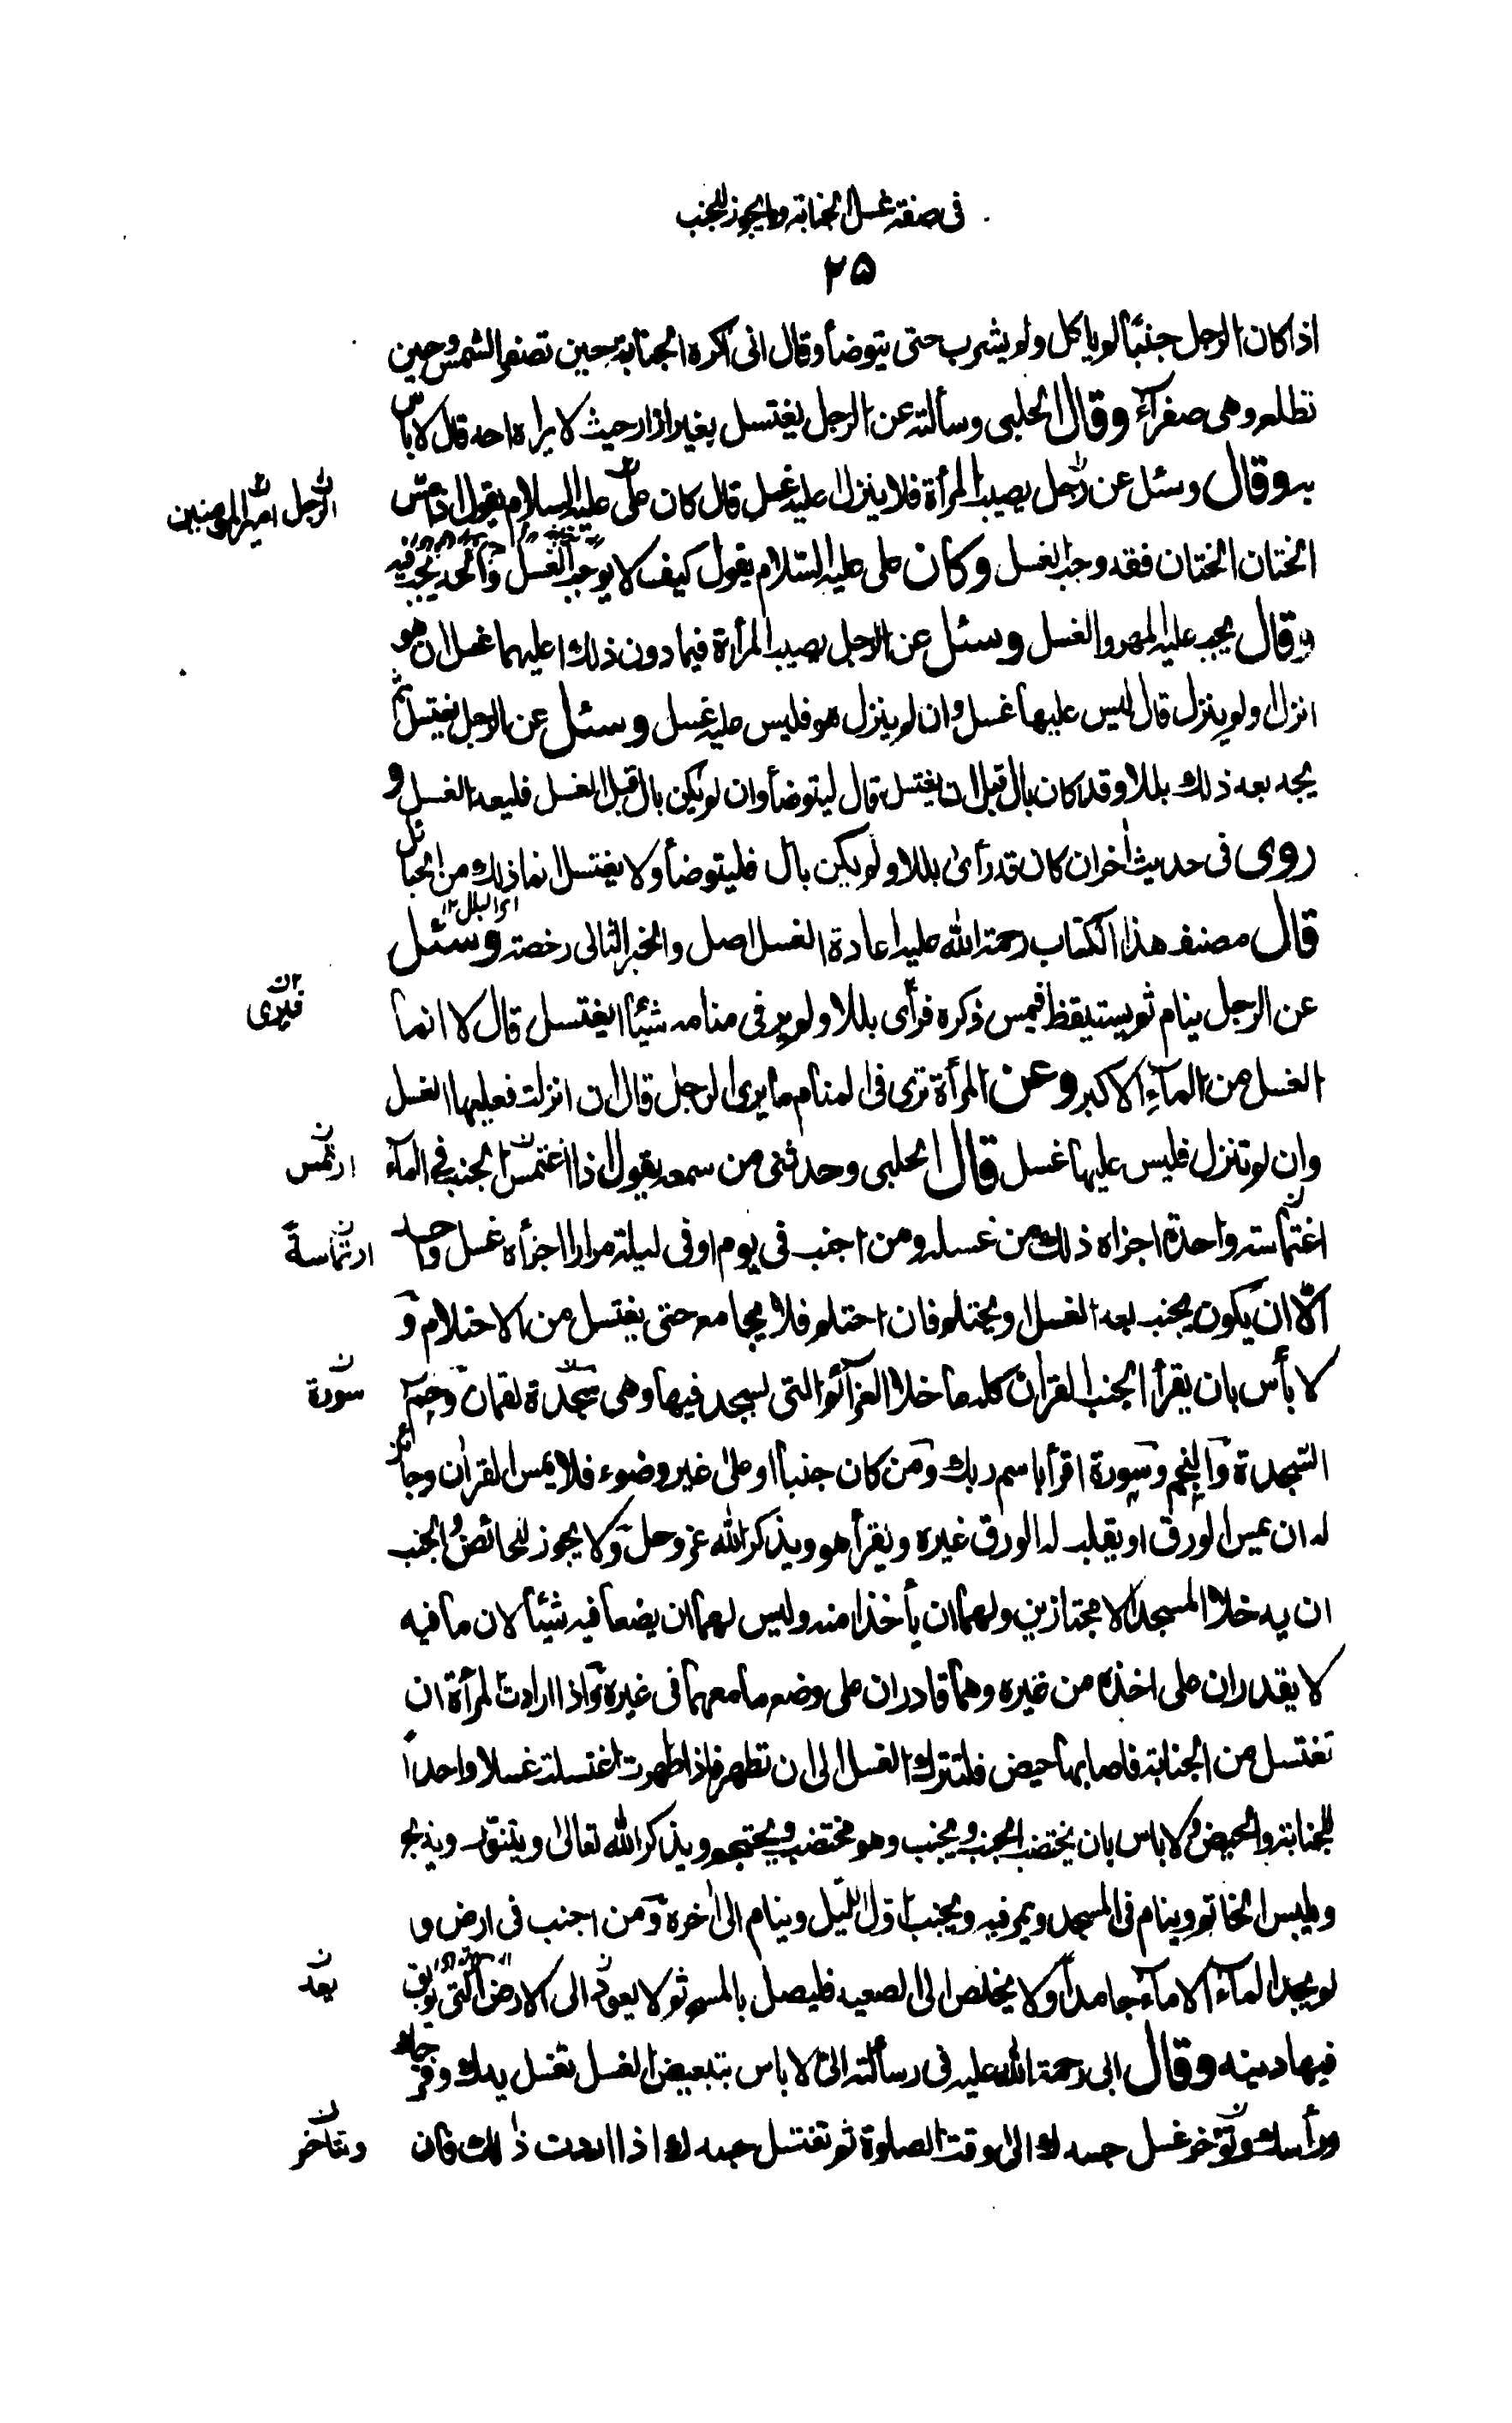 فى صفة غسل الجنابة وما يجوز للجنب
٢٥
اذا كان الرجل جنبًا لم ياكل ولم يشرب حتى يتوضأ وقال انى اكره الجنابة حين تصفر الشمس وحين
تطلع وهى صفرآء وقال الحلبى وسألته عن الرجل يغتسل بغير ازار حيث لا يراه احد قال لا باس
به وقال وسئل عن رجل يصيب المرأة فلا ينزل اعليه غسل قال كان علىّ عليه السلام يقول اذا مسّ
الرجل امير المومنين
الختان الختان فقد وجب الغسل وكان على عليه السّلام يقول كيف لا يوجب الغسل والحد يجب فيه
وقال يجب عليه المهر والغسل وسئل عن الرجل يصيب المرأة فيما دون ذلك اعليهما غسل ان هو
انزل ولم ينزل قال ليس عليها غسل وان لم ينزل هو فليس عليه غسل وسئل عن الرجل يغتسل ثم
يجد بعد ذلك بللا وقد كان بال قبل ان يغتسل قال ليتوضأ وان لم يكن بال قبل الغسل فليعد الغسل و
روى فى حديث اٰخر ان كان قد رأى بللا ولم يكن بال فليتوضأ ولا يغتسل انما ذلك من الحبائل
قال مصنف هذا الكتاب رحمة الله عليه اعادة الغسل اصل والخبر الثانى رخصة وسئل
عن الرجل ينام ثم يستيقظ فيمس ذكره فرأى بللا ولم ير فى منامه شيئًا ايغتسل قال لا انما
فيرى
الغسل من المآء الاكبر وعن المرأة ترى فى المنام ما يرى الرجل قال ان انزلت فعليها الغسل
وان لم تنزل فليس عليها غسل قال الحلبى وحدثنى من سمعه يقول اذا اغتمس الجنب فى المآء
ارتمس
اغتماسة واحدة اجزاه ذلك من غسله ومن اجنب فى يوم او فى ليلة مرارا اجزأه غسل واحد
ارتماسة
الّا ان يكون يجنب بعد الغسل او يحتلم فان احتلم فلا يجامع حتى يغتسل من الاحتلام و
لا بأس بان يقرأ الجنب القراٰن كله ما خلا العزآئم التى يسجد فيها وهى سجدة لقمان وحٰم
سورة
السّجدة والنجم وسورة اقرأ باسم ربك ومن كان جنبا او على غير وضوء فلا يمس القراٰن وجائز
له ان يمس الورق او يقلب له الورق غيره ويقرأ هو ويذكر الله عز وجل ولا يجوز للحائض والجنب
ان يدخلا المسجد الا مجتازين ولهما ان يأخذا منه وليس لهما ان يضعا فيه شيئًا لان ما فيه
لا يقدران على اخذه من غيره وهما قادران على وضع ما معهما فى غيره واذا ارادت المرأة ان
تغتسل من الجنابة فاصابها حيض فلتترك الغسل الى ان تطهر فاذا طهرت اغتسلت غسلا واحدًا
للجنابة والحيض ولا باس بان يختضب الجنب ويجنب وهو مختضب ويحتجم ويذكر الله تعالىٰ ويتنوّر ويذبح
ويلبس الخاتم وينام فى المسجد ويمر فيه ويجنب اوّل اللّيل وينام الى اٰخره ومن اجنب فى ارض و
لم يجد المآء الا مآء جامداً ولا يخلص الى الصعيد فليصل بالمسح ثم لا يعود الى الارض التى يوبق
يعد
فيها دينه وقال ابى رحمة الله عليه فى رسألته الىّ لا باس بتبعيض الغسل تغسل يدك وفرجك
ورأسك وتؤخر غسل جسدك الى وقت الصلوة ثم تغتسل جسدك اذا اردت ذٰلك فان
وتتأخر